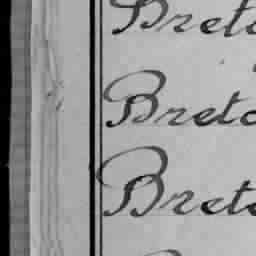 Breto
Breto
Breto